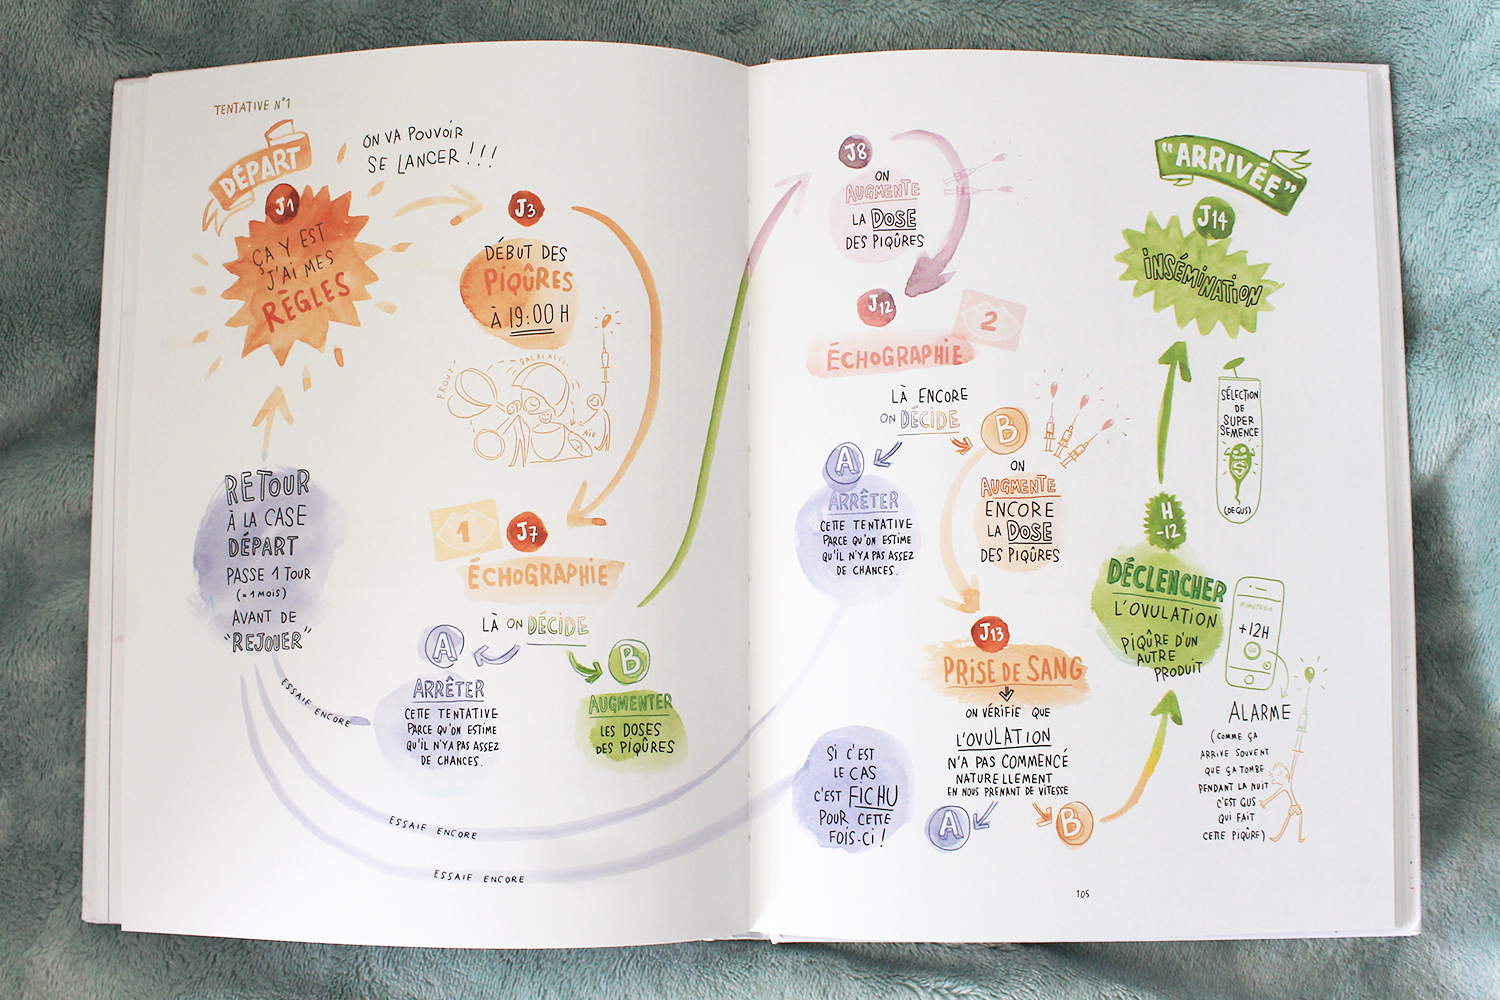 TENTATIVE N°1
DÉPART
ON VA POUVOIR
SE LANCER !!!
J1
ÇA Y EST
J'AI MES
RÈGLES
J3
DÉBUT DES
PIQÛRES
À 19:00 H
PROUT
BALALALL...
AÏE
1
J7
ÉCHOGRAPHIE
LÀ ON DÉCIDE
A
ARRÊTER
CETTE TENTATIVE
PARCE QU'ON ESTIME
QU'IL N'YA PAS ASSEZ
DE CHANCES.
B
AUGMENTER
LES DOSES
DES PIQÛRES
RETOUR
À LA CASE
DÉPART
PASSE 1 TOUR
(=1 MOIS)
AVANT DE
"REJOUER"
ESSAIE ENCORE
ESSAIE ENCORE
ESSAIE ENCORE
J8
ON
AUGMENTE
LA DOSE
DES PIQÛRES
J12
2
ÉCHOGRAPHIE
LÀ ENCORE
ON DÉCIDE
A
ARRÊTER
CETTE TENTATIVE
PARCE QU'ON ESTIME
QU'IL N'YA PAS ASSEZ
DE CHANCES.
B
ON
AUGMENTE
ENCORE
LA DOSE
DES PIQÛRES
J13
PRISE DE SANG
ON VÉRIFIE QUE
L'OVULATION
N'A PAS COMMENCÉ
NATURELLEMENT
EN NOUS PRENANT DE VITESSE
A
B
SI C'EST
LE CAS
C'EST FICHU
POUR CETTE
FOIS-CI !
"ARRIVÉE"
J14
INSÉMINATION
SÉLECTION
DE
SUPER
SEMENCE
S
(DE GUS)
H
-12
DÉCLENCHER
L'OVULATION
PIQÛRE D'UN
AUTRE
PRODUIT
MINUTERIE
+12H
GO
ALARME
(COMME ÇA
ARRIVE SOUVENT
QUE ÇA TOMBE
PENDANT LA NUIT
C'EST GUS
QUI FAIT
CETTE PIQÛRE)
105